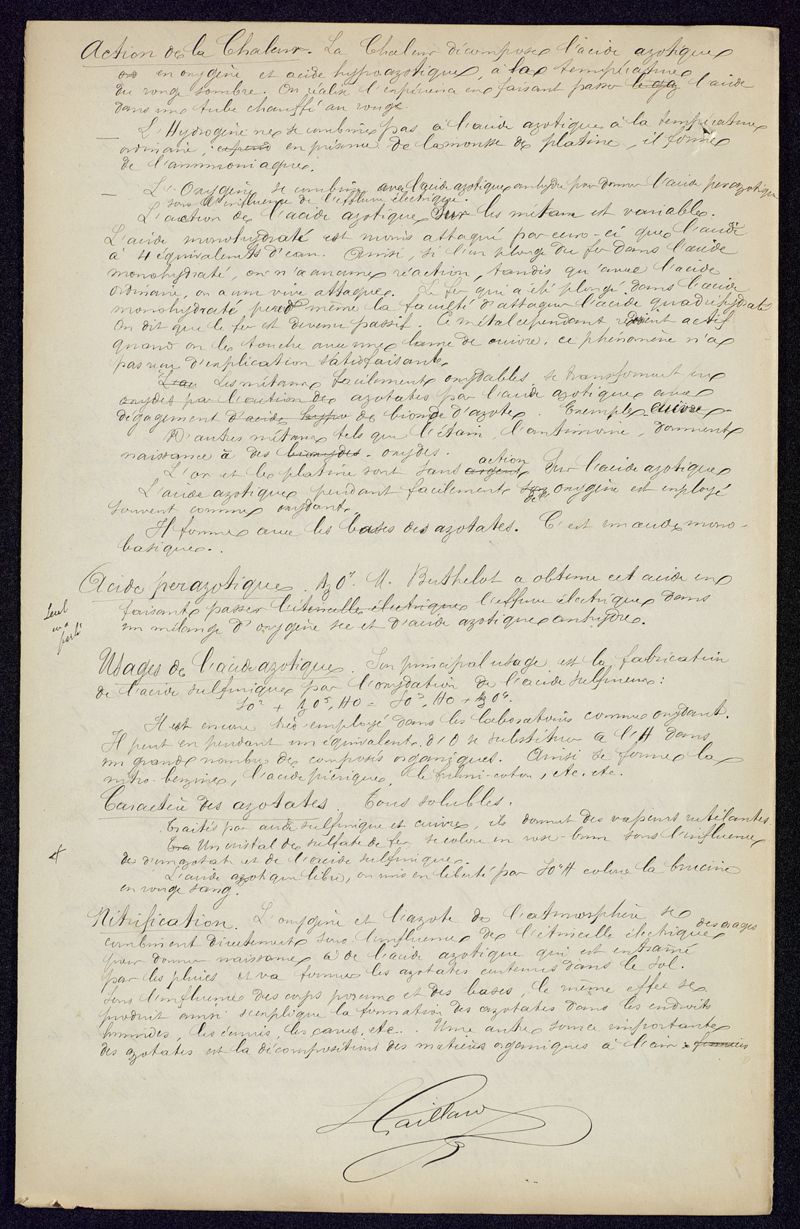 Action de la Chaleur. La Chaleur décompose l'acide azotique
en oxygène et acide hypoazotique, à la température
du rouge sombre. On réalise l'expérience en faisant passer le gaz l'acide
dans un tube chauffé au rouge
— L'Hydrogène ne se combine pas à l'acide azotique à la température
ordinaire, en présence de la mousse de platine, il forme
de l'ammoniaque.
— L'Oxygène se combine avec l'acide azotique anhydre pour donner l'acide perazotique
sous l'influence de l'effluve électrique.
L'action de l'acide azotique sur les métaux est variable.
L'acide monohydraté est moins attaqué par ceux-ci que l'acide
à 4 équivalents d'eau. Ainsi, si l'on plonge du fer dans l'acide
monohydraté, on n'a aucune réaction, tandis qu'avec l'acide
ordinaire, on a une vive attaque. Le fer qui a été plongé dans l'acide
monohydraté perd même la faculté d'attaquer l'acide quadrihydraté
On dit que le fer est devenu passif. Ce métal cependant redevient actif
quand on le touche avec une lame de cuivre, ce phénomène n'a
pas reçu d'explication satisfaisante.
L'ac Les métaux facilement oxydables se transforment en
oxydes par l'action des azotates par l'acide azotique avec
dégagement d'acide hypo de bioxyde d'azote. Exemple cuivre
D'autres métaux tels que l'étain, l'antimoine, donnent
naissance à des bioxydes oxydes.
L'or et le platine sont sans argent action sur l'acide azotique
L'acide azotique perdant facilement son de l' oxygène est employé
souvent comme oxydant.
Il forme avec les bases des azotates. C'est un acide mono-
basique.
Acide perazotique. AzO⁷. M. Berthelot a obtenu cet acide en
faisant passer l'étincelle électrique l'effluve électrique dans
un mélange d'oxygène sec et d'acide azotique anhydre.
Usages de l'acide azotique. Son principal usage est la fabrication
de l'acide sulfurique par l'oxydation de l'acide sulfureux:
SO² + AzO⁵, HO = SO³, HO + AzO⁴.
Il est encore très employé dans les laboratoires comme oxydant.
Il peut en perdant un équivalent d'O se substituer à l'H dans
un grand nombre de composés organiques. Ainsi se forme la
nitro-benzine, l'acide picrique, le fulmi-coton, etc. etc.
Caractère des azotates. Tous solubles.
Traités par acide sulfurique et cuivre, ils donnent des vapeurs rutilantes
Un cristal de sulfate de fer se colore en rose-brun sous l'influence
de d'un azotat et de l'acide sulfurique.
L'acide azotique libre, ou mis en liberté par SO⁴H colore la brucine
en rouge sang.
Nitrification. L'oxygène et l'azote de l'atmosphère se
combinent directement sous l'influence de l'étincelle électrique des orages
pour donner naissance à de l'acide azotique qui est entraîné
par les pluies et va former les azotates contenus dans le sol.
Sous l'influence des corps poreux et des bases, le même effet se
produit ainsi s'explique la formation des azotates dans les endroits
humides, les écuries, les caves, etc. Une autre source importante
des azotates est la décomposition des matières organiques à l'air
Gaillard